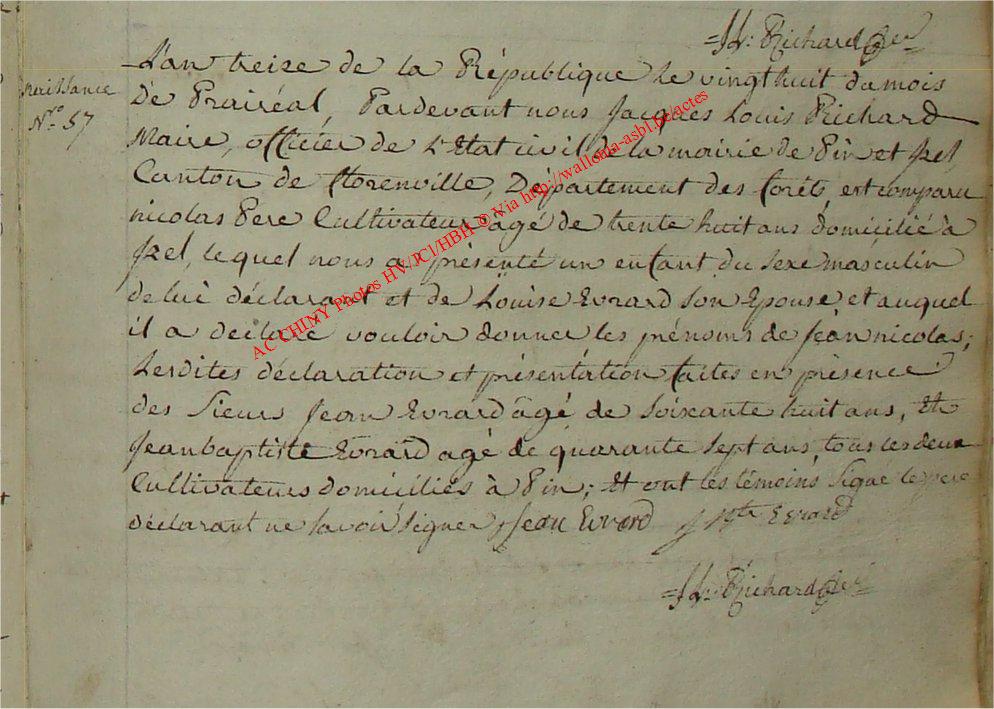 =JL: Richard
L'an treize de la République le vingthuit du mois
Naissance
De Prairéal, Pardevant nous Jacques Louis Richard
N.° 57
Maire, officier de l'Etat civil de la mairie de Pin et Izel,
Canton de florenville, Departement des forêts, est comparu
nicolas Pere Cultivateur âgé de trente huit ans domicilié à
Izel, lequel nous a présenté un enfant du sexe masculin
de lui déclarant et de Louise Evrard son Epouse et auquel
il a déclaré vouloir donner les prénoms de Jean nicolas;
Lesdites déclaration et présentation faites en présence
des Sieurs Jean Evrard âgé de soixante huit ans, Et
Jean baptiste Evrard agé de quarante sept ans, tous les deux
Cultivateurs domiciliés à Pin; Et ont les témoins signé le pere
déclarant ne savoir signer Jean Evrard J Bte Evrard
=JL: Richard
AC CHINY Photos HV/JCl/HBH © Via http://wallonia-asbl.be/actes